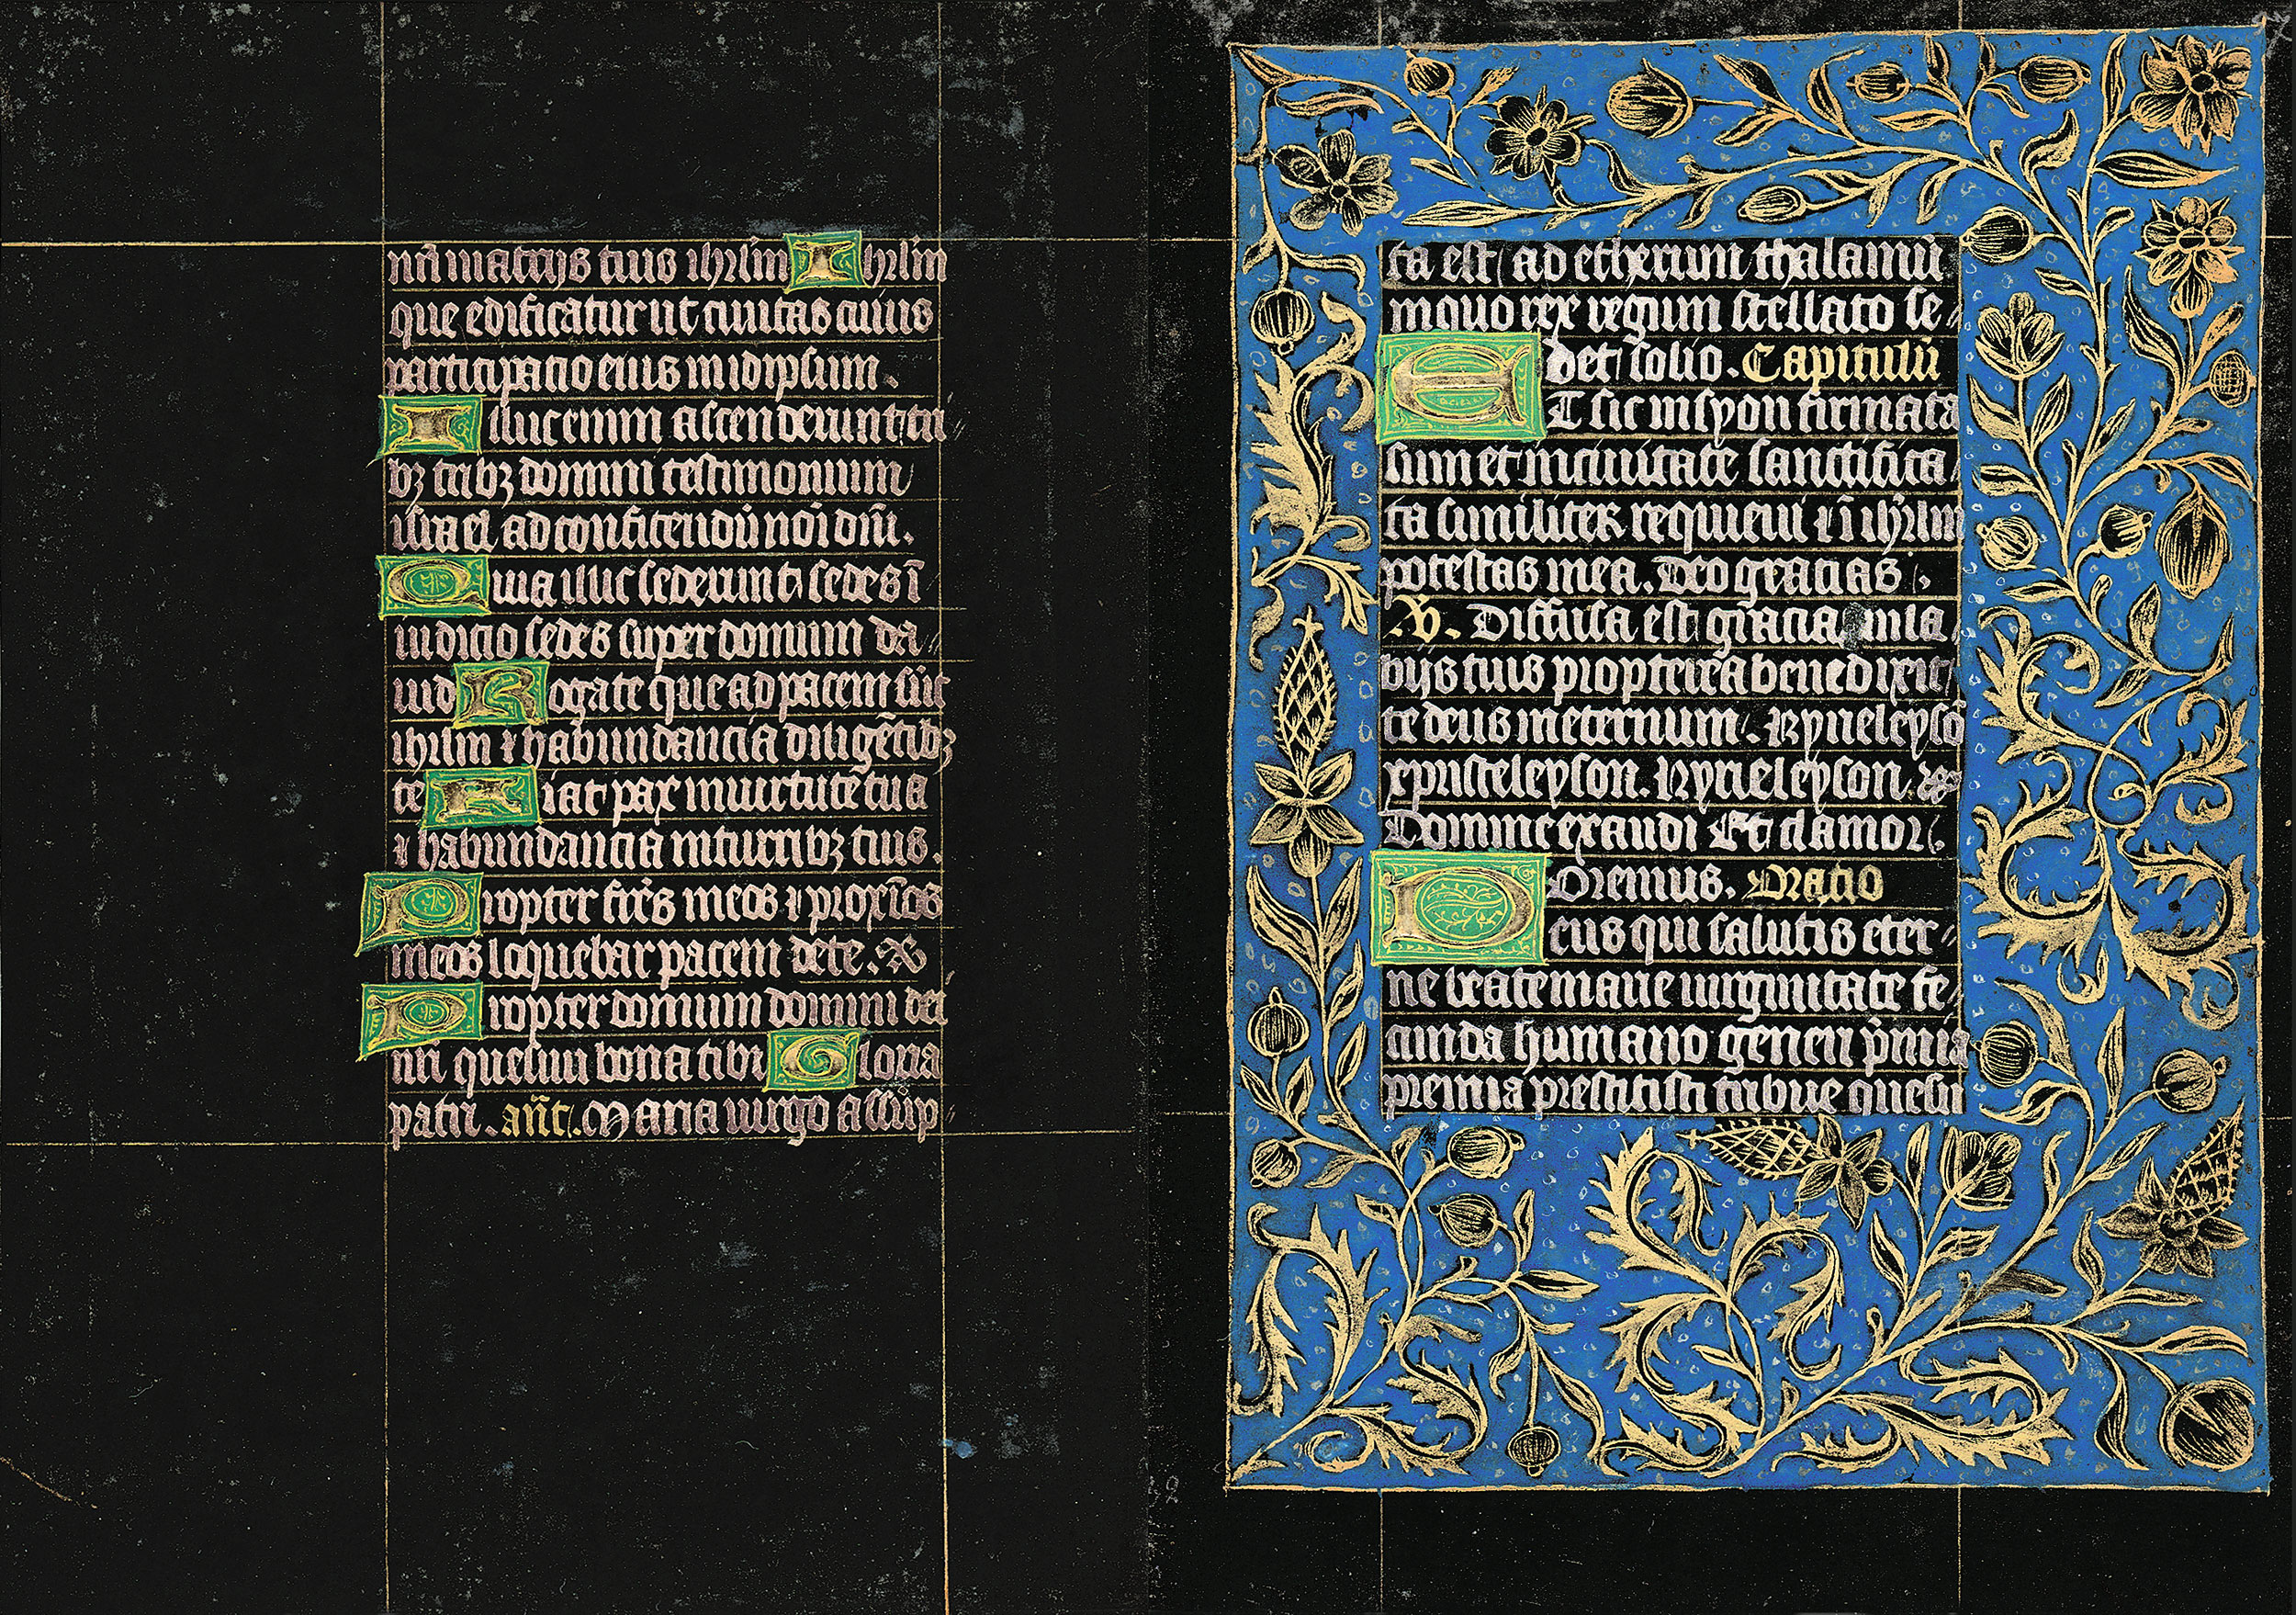 nr̄i in atrijs tuis ihrl̄m Ihrl̄m
que edificatur ut ciuitas cuius
participatio eius in idipsum.
Illuc enim ascenderunt tri
bꝫ tribꝫ domini testimonium
israel ad confitendū noī dn̄i.
Quia illuc sederunt sedes ī
iudicio sedes super domum da
uid Rogate que ad pacem sūt
ihrl̄m ⁊ habundancia diligētibꝫ
te Fiat pax in uirtute tua
⁊ habundancia in turribꝫ tuis.
Propter fr̄es meos ⁊ proxīos
meos loquebar pacem de te.
Propter domum domini dei
nr̄i quesiui bona tibi Gloria
patri. an̄t. Maria uirgo assūp
ta est ad ethereum thalamū
in quo rex regum stellato se
det solio. Capitulū
ET sic in syon firmata
sum et in ciuitate sanctifica
ta similiter requieui ⁊ ī ihrl̄m
potestas mea. Deo gracias.
V. Diffusa est gracia in la
bijs tuis propterea benedixit
te deus in eternum. Kyrieleysō
xpristeleyson. Kyrieleyson.
Domine exaudi Et clamor.
Oremus. Oratio
Deus qui salutis eter
ne beate marie uirginitate fe
cunda humano generi
premia prestitisti tribue quesu